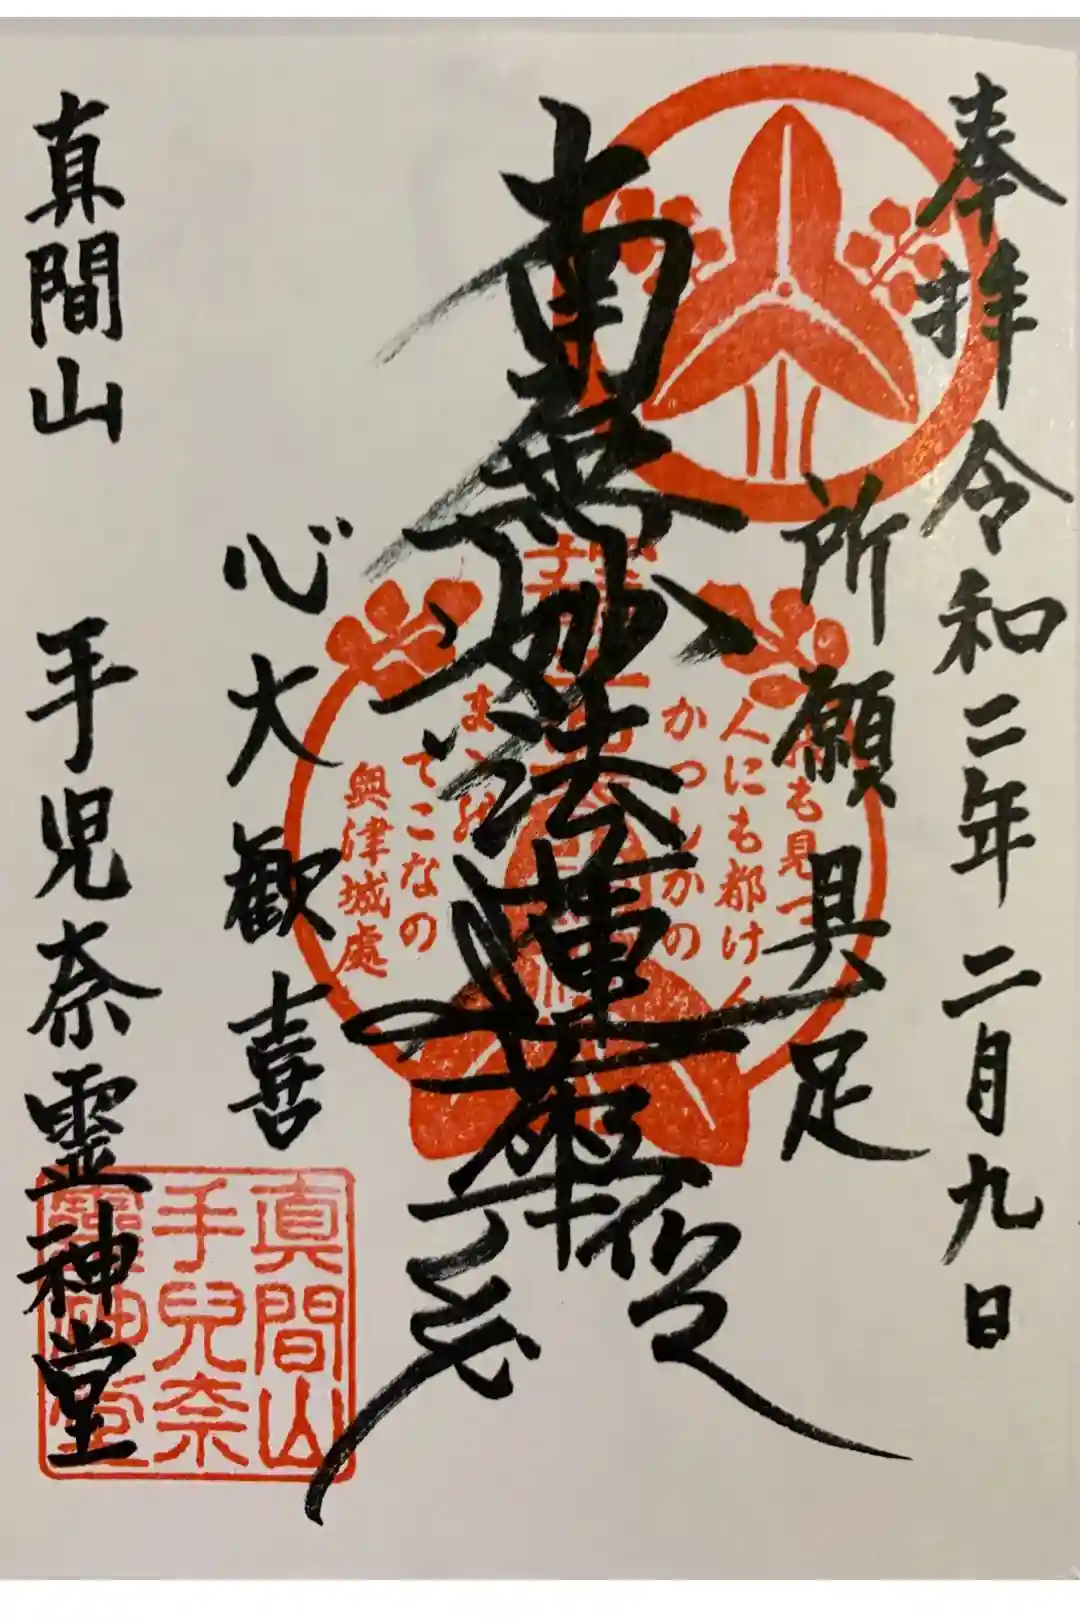 奉拝 令和二年二月九日
所願具足
南無妙法蓮華経
も見
人にも都けん
かつしかの
まゝ
てこなの
奥津城處
心大歓喜
真間山 手児奈霊神堂
真間山
手兒奈
靈神堂